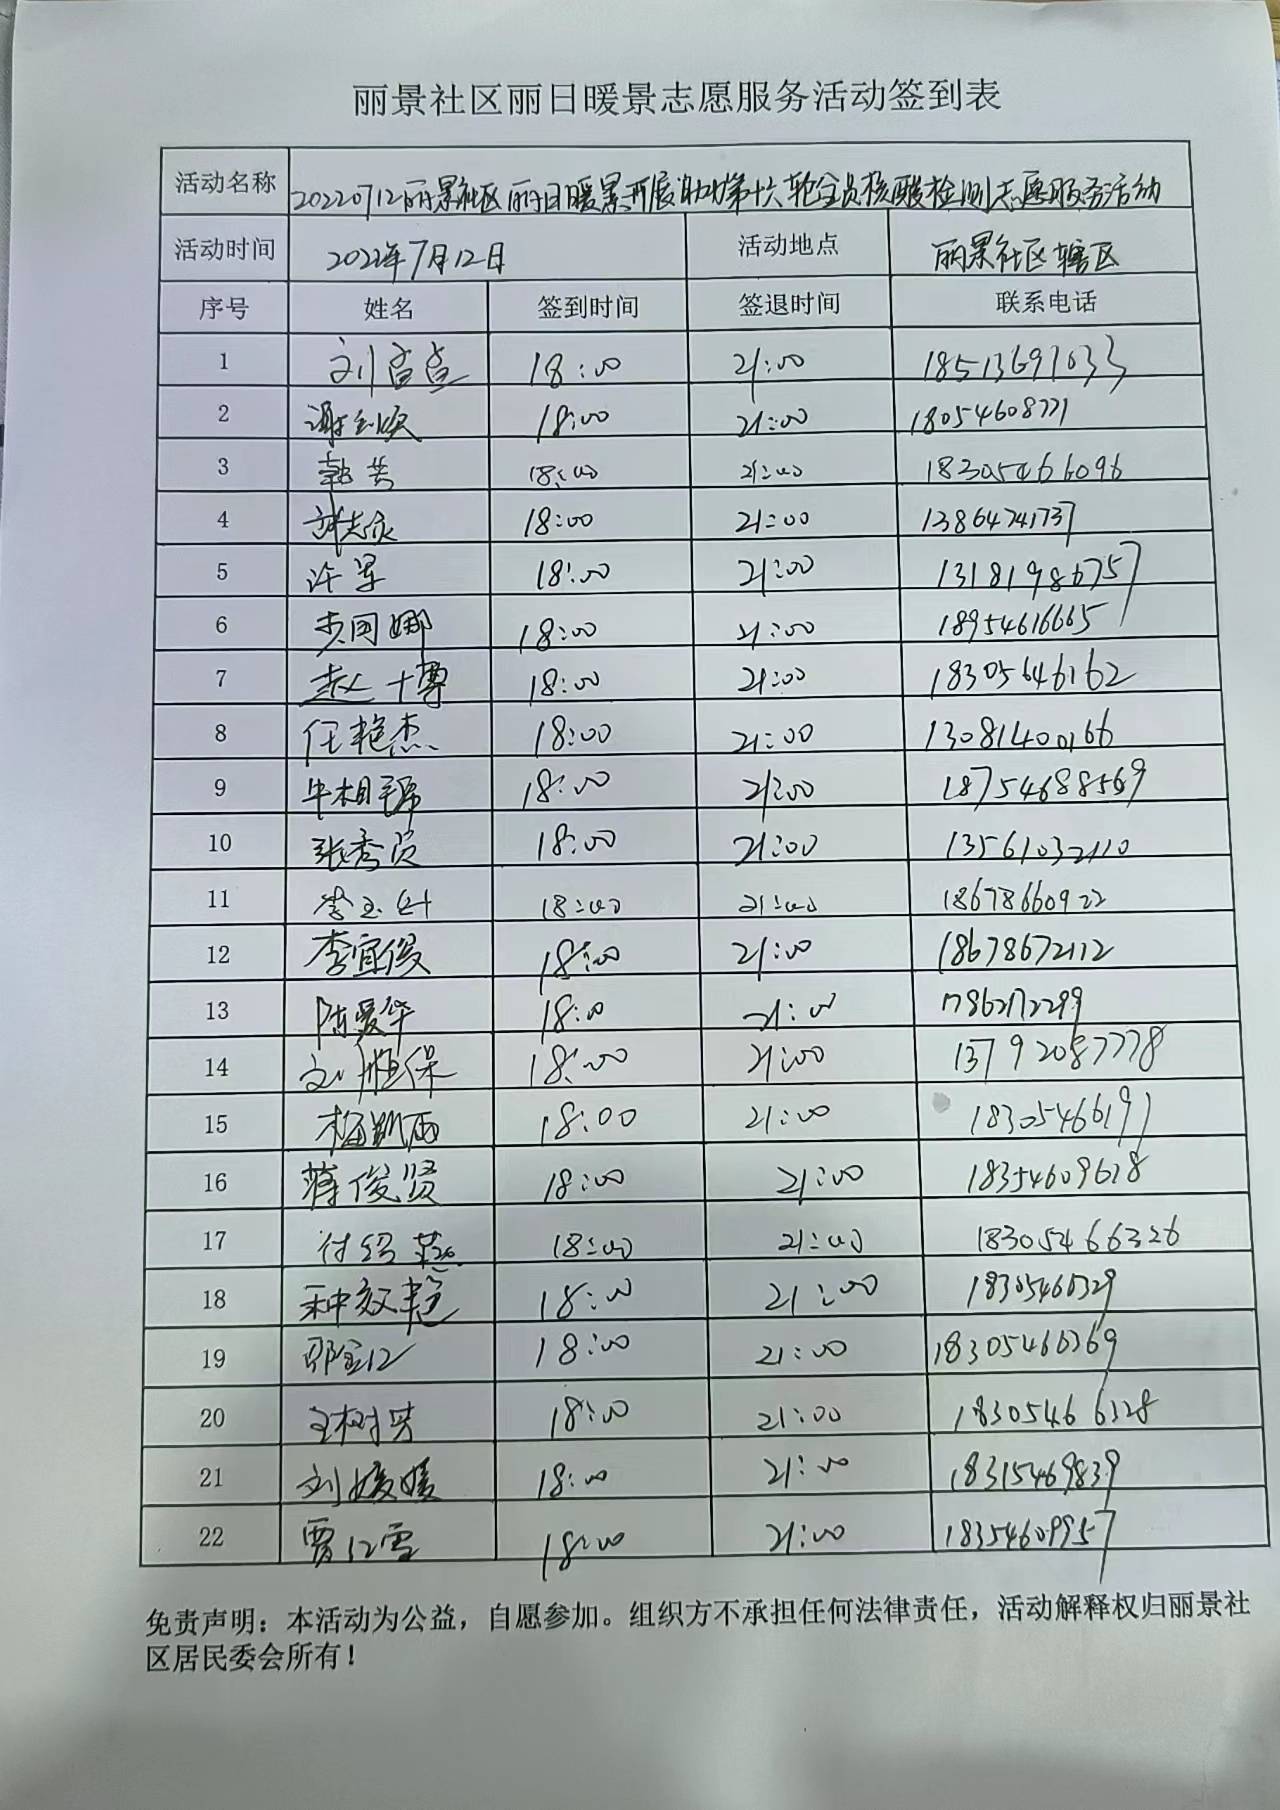 丽景社区丽日暖景志愿服务活动签到表
活动名称 20220712丽景社区丽日暖景开展助力第十六轮全员核酸检测志愿服务活动
活动时间 2022年7月12日 活动地点 丽景社区辖区
序号 姓名 签到时间 签退时间 联系电话
1 18:00 21:00 18513691033
2 18:00 21:00 18054608771
3 18:00 21:00 18305466096
4 18:00 21:00 13864741737
5 许军 18:00 21:00 13181986757
6 18:00 21:00 18954616665
7 赵一博 18:00 21:00 18305646162
8 任艳杰 18:00 21:00 13081400166
9 18:00 21:00 18754688569
10 张秀贞 18:00 21:00 13561032110
11 18:00 21:00 18678660922
12 李宜俊 18:00 21:00 18678672112
13 陈爱华 18:00 21:00 17862172299
14 18:00 21:00 13792087778
15 18:00 21:00 18305466191
16 蒋俊贤 18:00 21:00 18354609618
17 付绍燕 18:00 21:00 18305466326
18 种效艳 18:00 21:00 18305460329
19 18:00 21:00 18305466369
20 18:00 21:00 18305466328
21 刘媛媛 18:00 21:00 18315469839
22 贾红雪 18:00 21:00 18354609957
免责声明：本活动为公益，自愿参加。组织方不承担任何法律责任，活动解释权归丽景社
区居民委会所有！